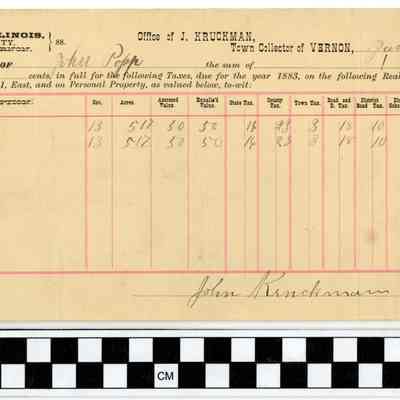 LLINOIS, ss. Office of J. KRUCKMAN,
TY. Town Collector of VERNON,
OF John Popp the sum of
cents, in full for the following Taxes, due for the year 1883, on the following Real
1, East, and on Personal Property, as valued below, to-wit:
Sec. Acres. Assessed Value. Equaliz'd Value. State Tax. County Tax. Town Tax. Road and D. Tax District Road Tax.
13 5 17 50 50 14 23 3 18 10
13 5 17 50 50 14 23 3 18 10
John Kruckman
CM